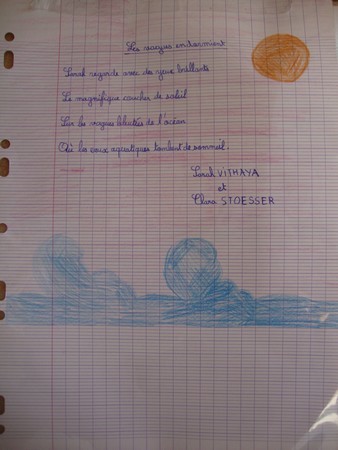 Les vagues endorment
Sarah regarde avec des yeux brillants
Le magnifique coucher de soleil
Sur les vagues bleutées de l'océan
Où les eaux aquatiques tombent de sommeil.
Sarah VITHAYA
et
Clara STOESSER